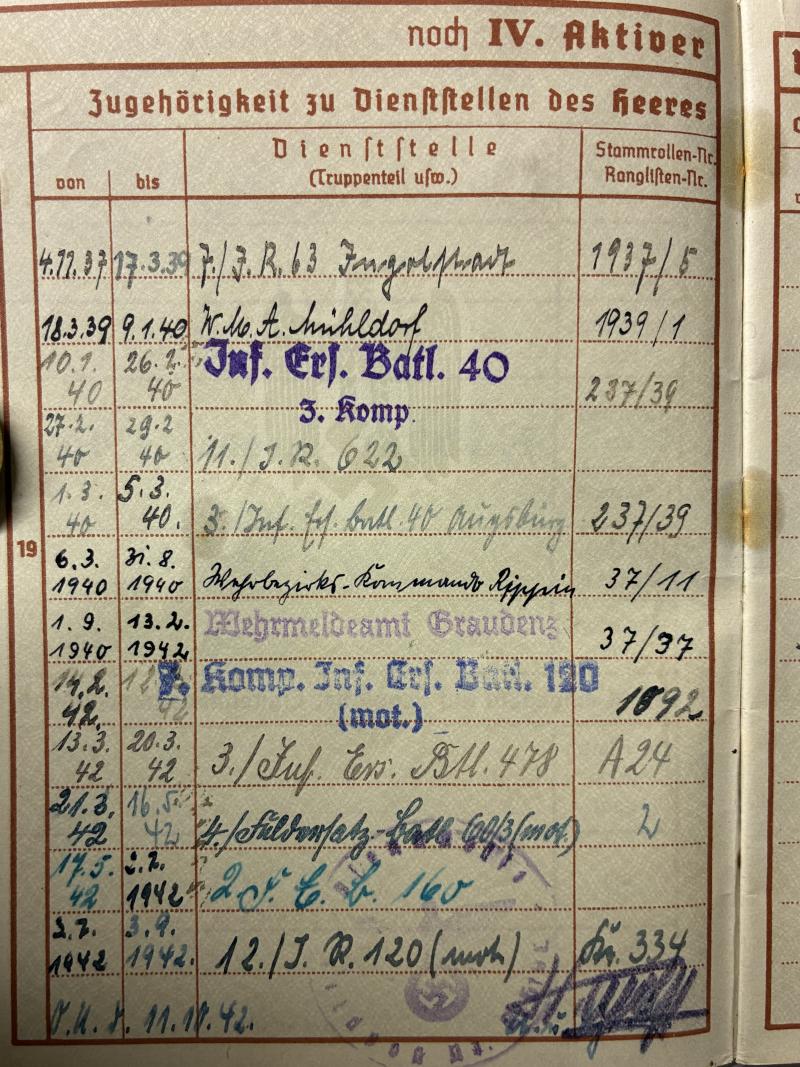 noch IV. Aktiver
Zugehörigkeit zu Dienststellen des Heeres
von bis Dienststelle (Truppenteil usw.) Stammrollen-Nr. Ranglisten-Nr.
4.11.37 17.3.39 7./J.R. 63 Ingolstadt 1937/5
18.3.39 9.1.40 W.M.A. Mühldorf 1939/1
10.1. 40 26.2. 40 Inf. Ers. Batl. 40 237/39
3. Komp.
27.2. 40 29.2 40 11./J.R. 622
1.3. 40 5.3. 40. 3./Inf. Ers. Batl. 40 Augsburg 237/39
19
6.3. 1940 31.8. 1940 Wehrbezirks-Kommando Rippin 37/11
1.9. 1940 13.2. 1942 Wehrmeldeamt Graudenz 37/37
14.2. 42. 12 42 7. Komp. Inf. Ers. Batl. 120 1092
(mot.)
13.3. 42 20.3. 42 3./Inf. Ers. Btl. 478 A24
21.3. 42 16.5. 42 4./Feldersatz-Batl. 60/3 (mot.) 2
17.5. 42 2.7. 1942 2 F. E. B. 160
3.7. 1942 3.9. 1942. 12./J.R. 120 (mot) Kr. 334
O.U. d. 11.10.42.